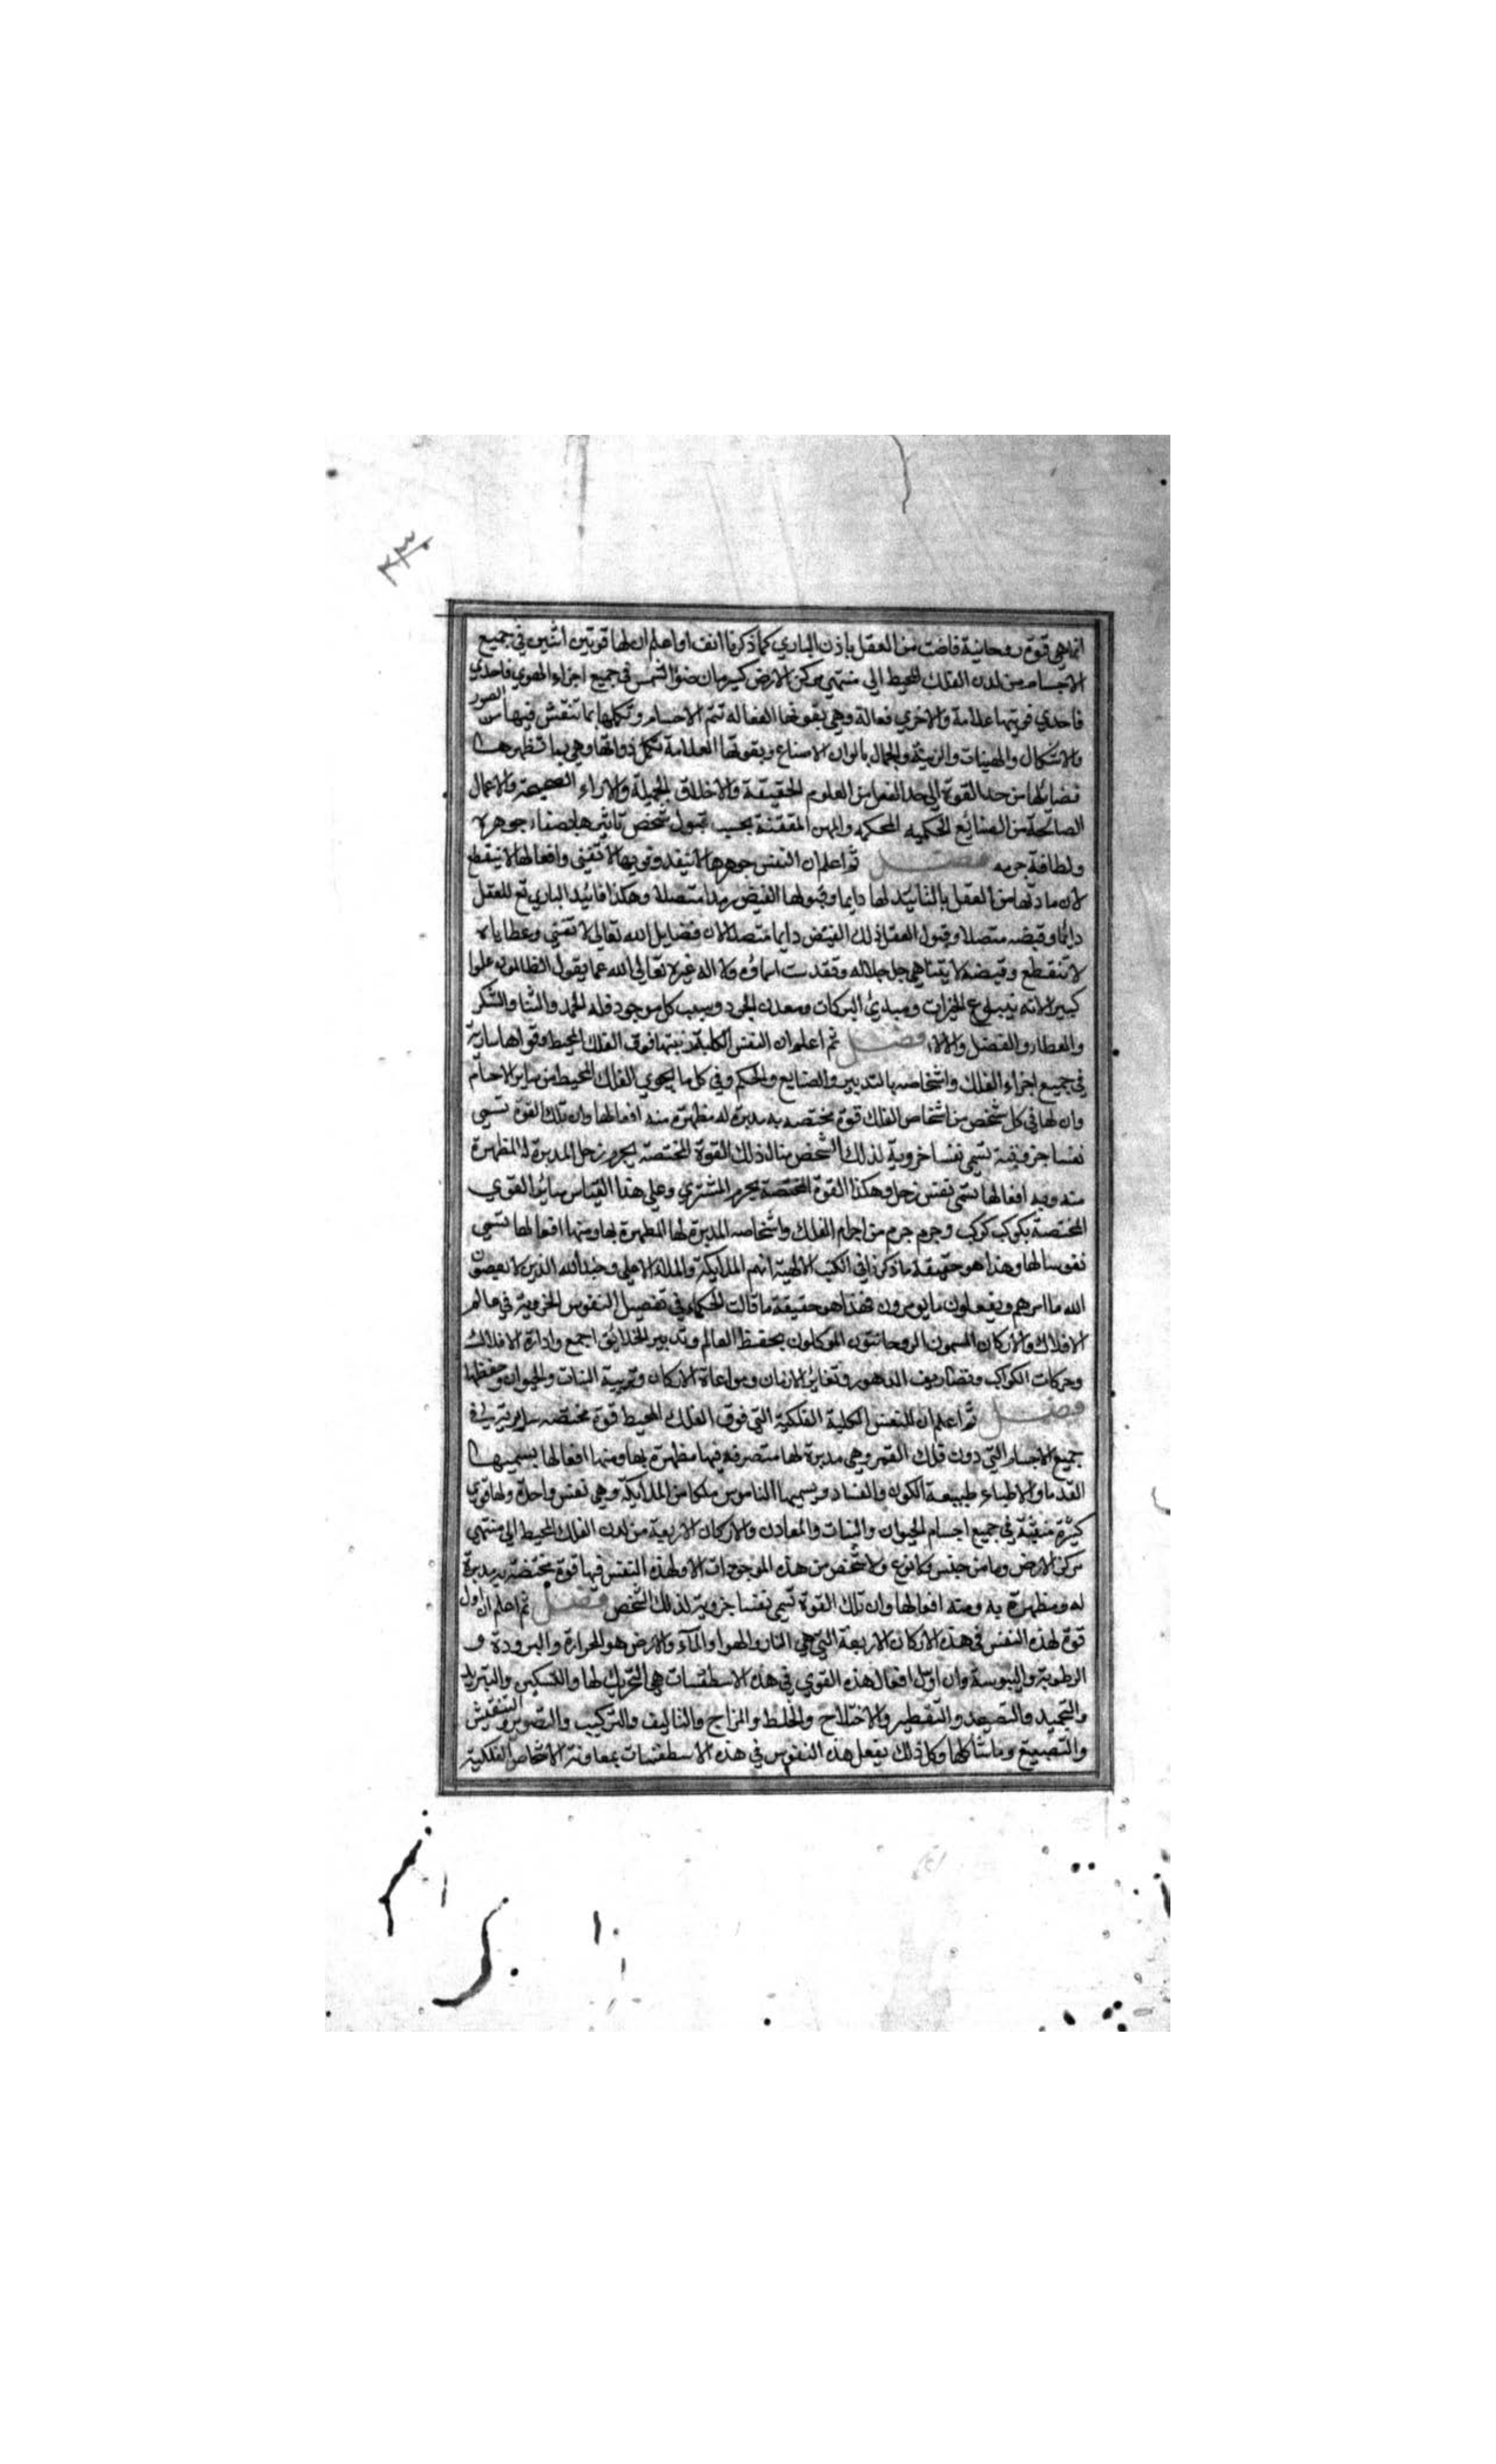 ٢٣٠
انماهي قوة روحانية فاضت من العقل باذن الباري كما ذكرنا انفا واعلم ان لها قوتين اثنين في جميع
الاجسام من لدن الفلك المحيط الي منتهي مركز الارض كسريان ضوء الشمس في جميع اجزاء الهوي فاحدي
فاحدي قوتيها علامة والاخري فعالة وهي بقوتها الفعاله تتم الاجسام وتكملها بما تنقش فيها من الصور
والاشكال والهيئات والزينة والجمال بالوان الاصباغ وبقوتها العلامة تكمل ذواتها وهي بما تظهر من
فضائلها من حد القوة الي حد الفعل من العلوم الحقيقة والاخلاق الجميلة والاراء الصحيحة والاعمال
الصالحة من الصنائع الحكميه المحكمه والمهن المتقنة بحسب قبول شخص تاثيرها بصفاء جوهره
ولطافة جرمه فصل ثم اعلم ان النفس جوهرها لا ينفد وقويها لا تفني وافعالها لا ينقطع
لان مادتها من العقل بالتائيد لها دايما وقبولها الفيض منه متصلا وهكذا تائيد الباري تع للعقل
دائما وفيضه متصلا وقبول العقل ذلك الفيض دايما متصلا لان فضايل الله تعالي لا تفني وعطاياه
لا تنقطع وفيضه لا يتناهي جل جلاله وتقدست اسماؤه ولا اله غيره تعالي الله عما يقول الظالمون علوا
كبيرا لانه ينبوع الخيرات ومبدئ البركات ومعدن الجود وسبب كل موجود فله الحمد والثنا والشكر
والعطاء والفضل والالاء فصل ثم اعلم ان النفس الكلية رتبتها فوق الفلك المحيط وقواها سارية
في جميع اجزاء الفلك واشخاصه بالتدبير والصنايع والحكم وفي كل ما يحوي الفلك المحيط من ساير الاجسام
وان لها في كل شخص من اشخاص الفلك قوة مختصه به مدبرة له مظهرة منه افعالها وان تلك القوة تسمي
نفسا جزوية لذلك الشخص مثال ذلك القوة المختصة بجرم زحل المدبرة له المظهرة
منه وبه افعالها تسمي نفس زحل وهكذا القوة المختصة بجرم المشتري وعلي هذا القياس سائر القوي
المختصة بكوكب كوكب وجرم جرم من اجرام الفلك واشخاصه المدبرة لها المظهرة بها ومنها افعالها تسمي
نفوسا لها وهذا هو حقيقة ما ذكر في الكتب الالهية انهم الملايكة والملاء الاعلي وجند الله الذين لا يعصون
الله ما امرهم ويفعلون ما يومرون فهذا هو حقيقة ما قالت الحكماء في تفصيل النفوس الجزوية في عالم
الافلاك والاركان المسمون الروحانيون الموكلون بحفظ العالم وتدبير الخلائق اجمع وادارة الافلاك
وحركات الكواكب وتصاريف الدهور وتغائر الازمان ومراعاة الاركان وتربية النبات والحيوان وحفظها
فصل ثم اعلم ان للنفس الكلية الفلكية التي فوق الفلك المحيط قوة مختصه سارية في
جميع الاجسام التي دون فلك القمر وهي مدبرة لها متصرفه فيها مظهرة بها ومنها افعالها يسميها
القدماء والاطباء طبيعة الكون والفساد ويسميها الناموس ملكا من الملايكة وهي نفس واحدة ولها قوي
كثيرة منبثة في جميع اجسام الحيوان والنبات والمعادن والاركان الاربعة من لدن الفلك المحيط الي منتهي
مركز الارض وما من جنس ولا نوع ولا شخص من هذه الموجودات الا ولهذه النفس فيها قوة مختصة به مدبرة
له ومظهرة به ومنه افعالها وان تلك القوة تسمي نفسا جزوية لذلك الشخص فصل ثم اعلم ان اول
قوة لهذه النفس في هذه الاركان الاربعة التي هي النار والهوا والمآء والارض هو الحرارة والبرودة و
الرطوبة واليبوسة وان اول افعال هذه القوي في هذه الاسطقسات هي التحريك لها والتسكين والتبريد
والتجميد والتصعيد والتقطير والاختلاج والخلط والمزاج والتاليف والتركيب والتصوير والتنقيش
والتصبيغ وما شاكلها وكل ذلك يفعل هذه النفوس في هذه الاسطقسات بمعاونة الاشخاص الفلكية